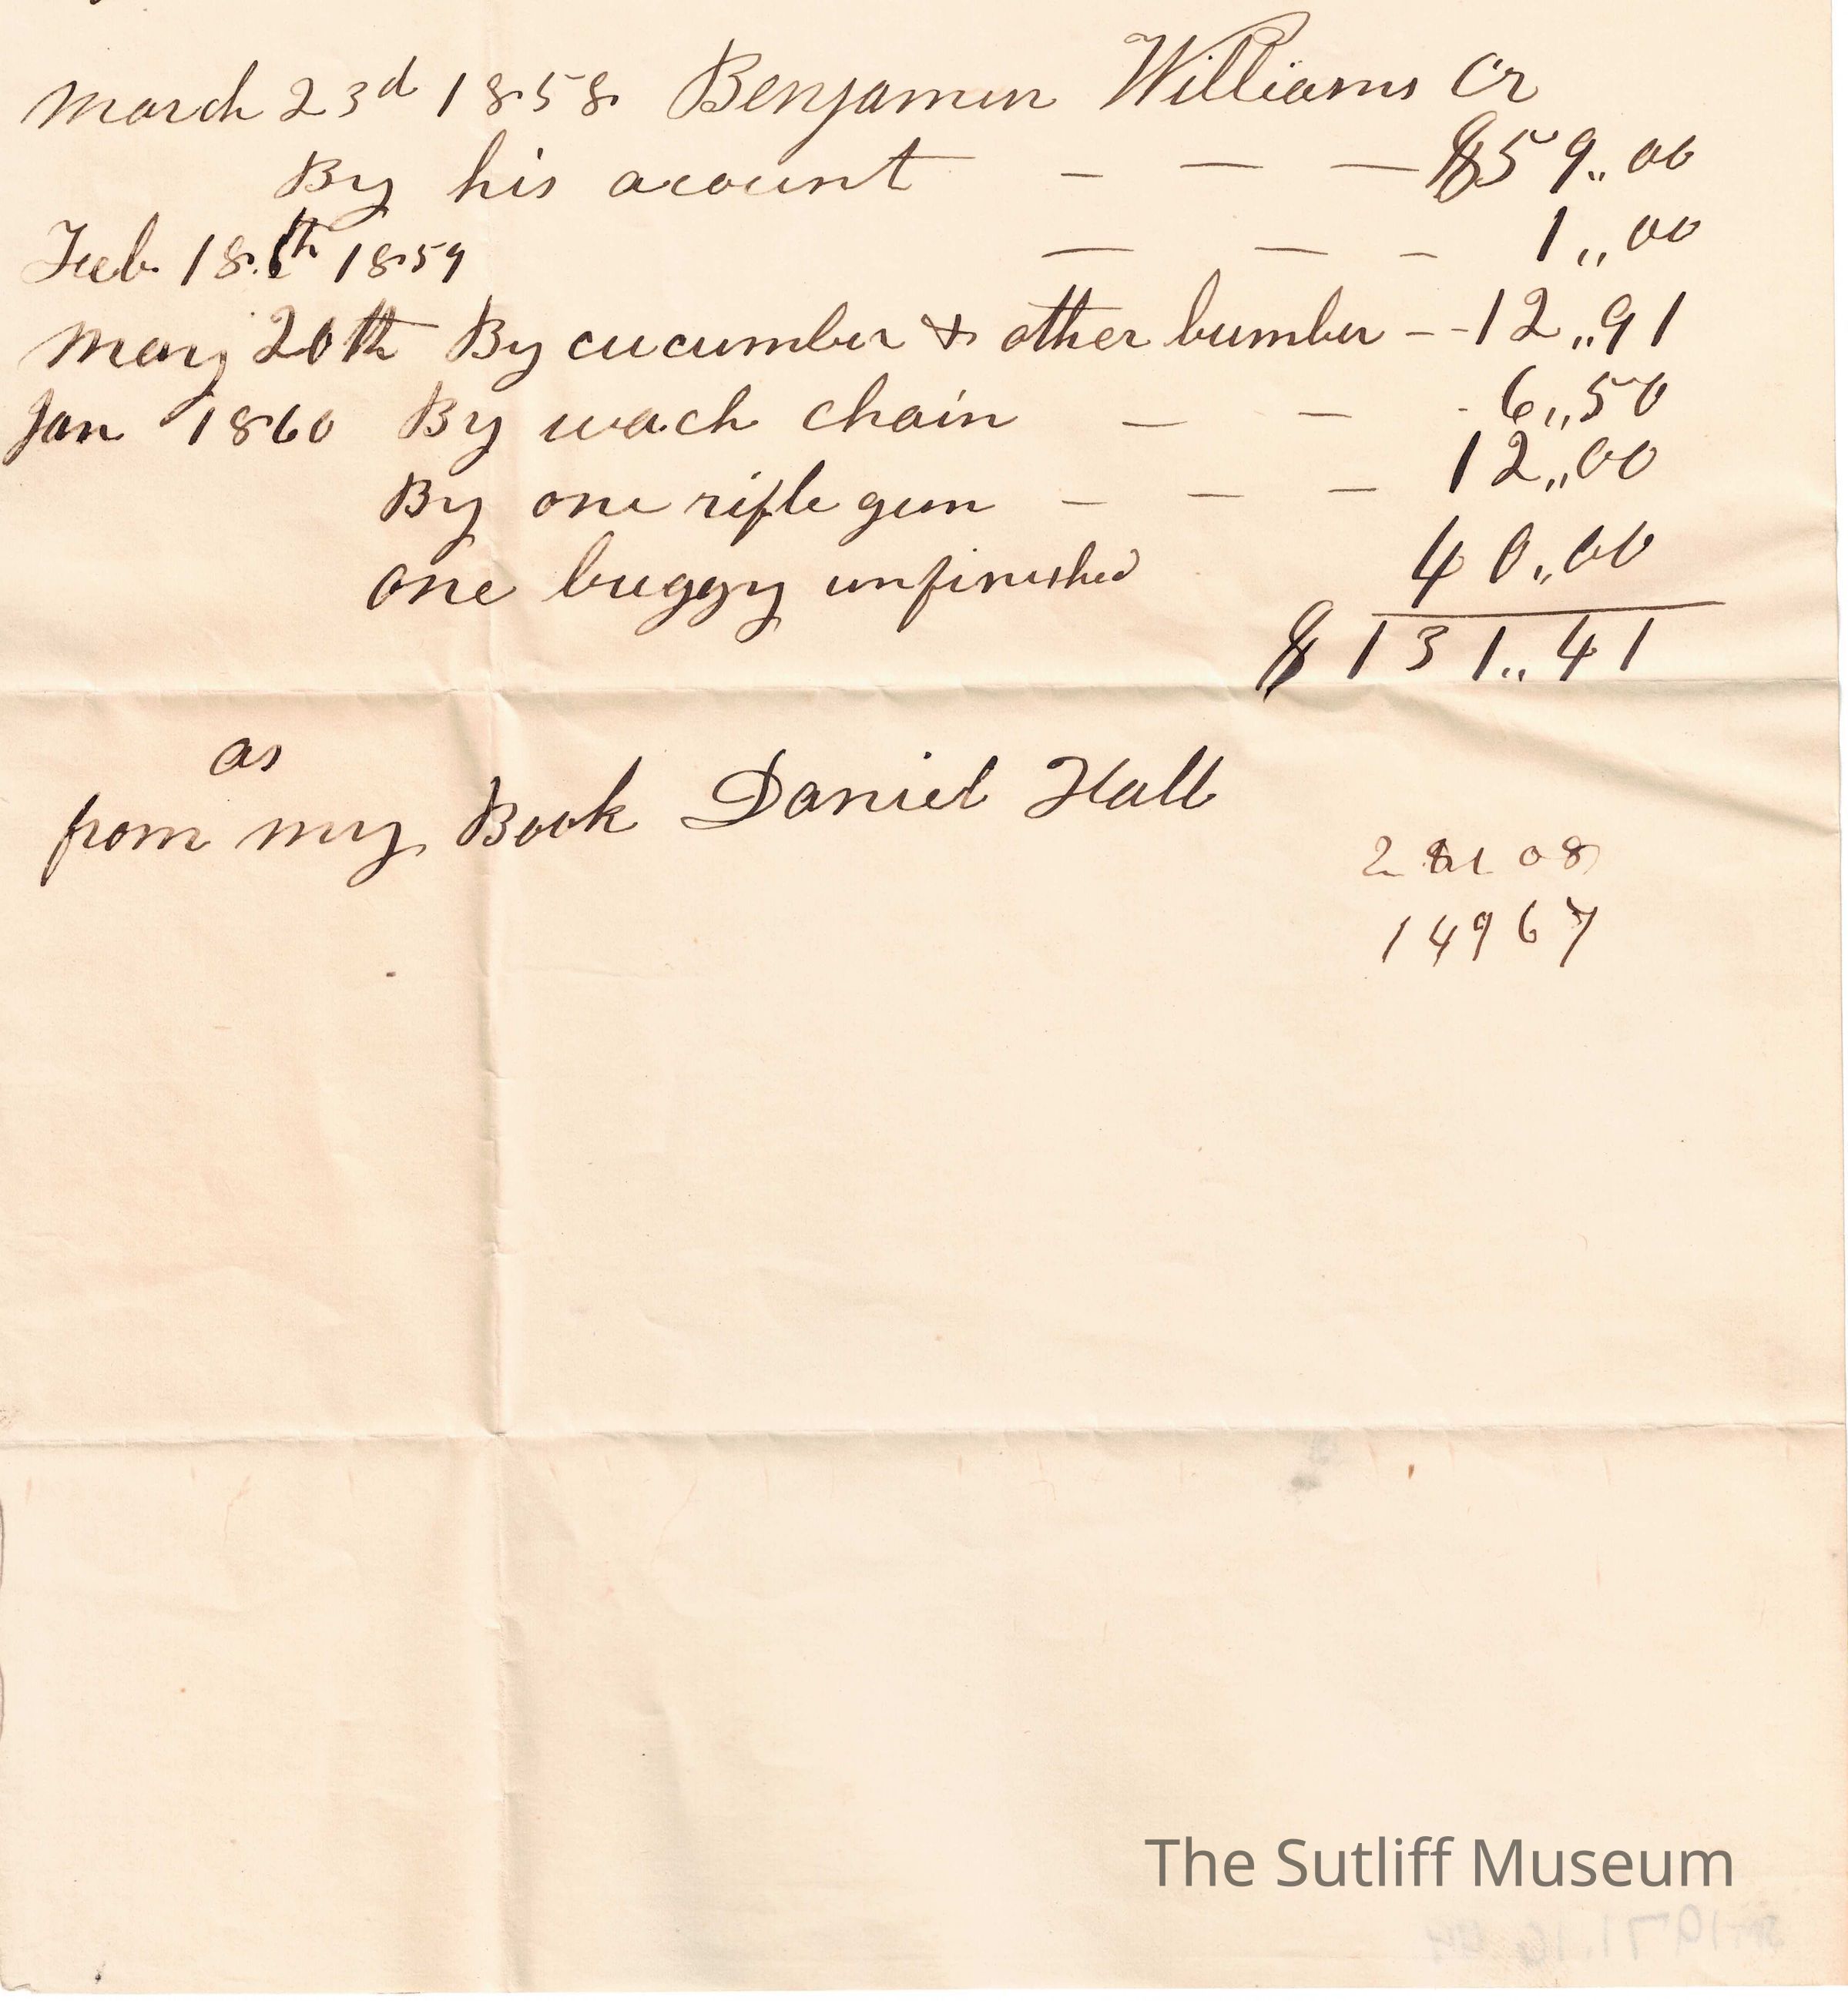 March 23d 1858 Benjamin Williams Cr
By his acount — — — $59,,00
Feb 18th 1859 — — — 1,,00
May 20th By cucumber & other bumber - - 12,,91
Jan 1860 By wach chain — — - 6,,50
By one rifle gun — — — 12,,00
one buggy unfinished 40,,00
$131,,41
as
from my Book Daniel Hall
14967
The Sutliff Museum